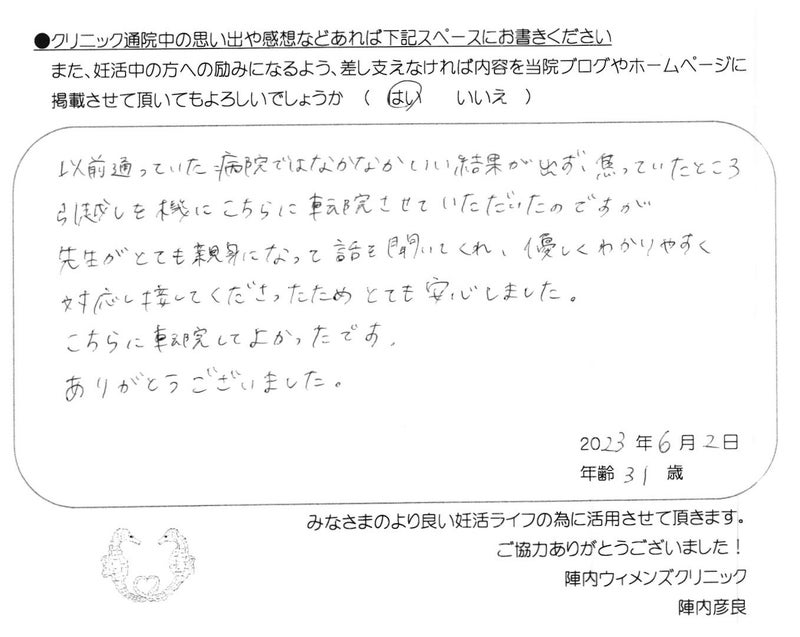 ●クリニック通院中の思い出や感想などあれば下記スペースにお書きください
また、妊活中の方への励みになるよう、差し支えなければ内容を当院ブログやホームページに
掲載させて頂いてもよろしいでしょうか （ はい いいえ ）
以前通っていた病院ではなかなかいい結果が出ず、焦っていたところ
引越しを機にこちらに転院させていただいたのですが
先生がとても親身になって話を聞いてくれ、優しくわかりやすく
対応し接してくださったためとても安心しました。
こちらに転院してよかったです。
ありがとうございました。
2023年6月2日
年齢 31 歳
みなさまのより良い妊活ライフの為に活用させて頂きます。
ご協力ありがとうございました！
陣内ウィメンズクリニック
陣内彦良